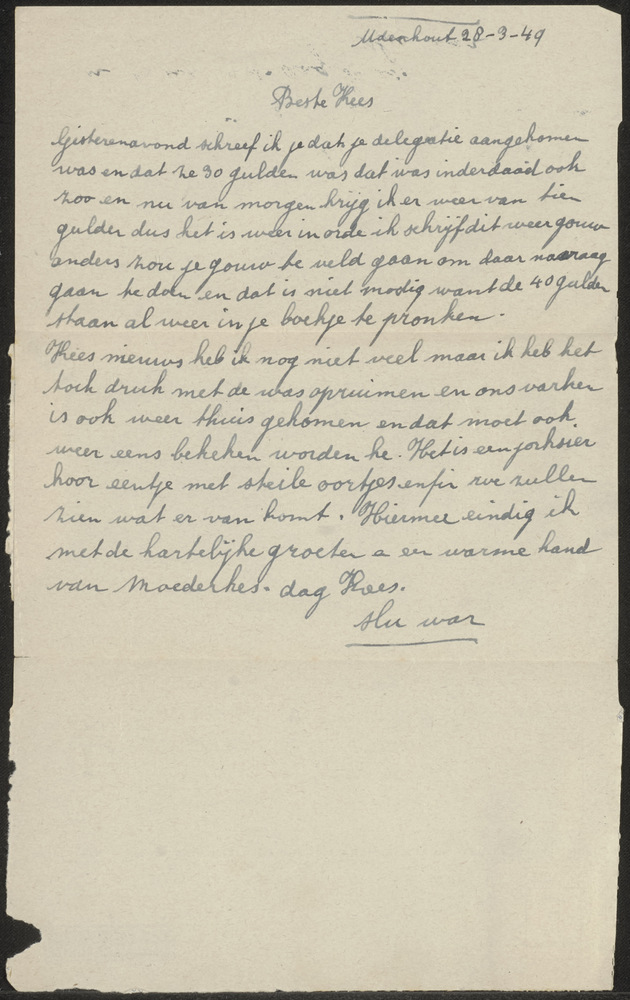 Udenhout 28-3-49
Beste Kees
Gisterenavond schreef ik je dat je delegatie aangekomen
was en dat ze 30 gulden was dat was inderdaad ook
zoo en nu van morgen krijg ik er weer van tien
gulden dus het is weer in orde ik schrijf dit weer gouw
anders zou je gouw te veld gaan om daar navraag
gaan te doen en dat is niet nodig want de 40 gulden
staan al weer in je boekje te pronken.
Kees nieuws heb ik nog niet veel maar ik heb het
toch druk met de was opruimen en ons varken
is ook weer thuis gekomen en dat moet ook
weer eens bekeken worden he. Het is een jorksier
hoor eentje met steile oortjes enfin we zullen
zien wat er van komt. Hiermee eindig ik
met de hartelijke groeten a een warme hand
van Moederkes. dag Kees.